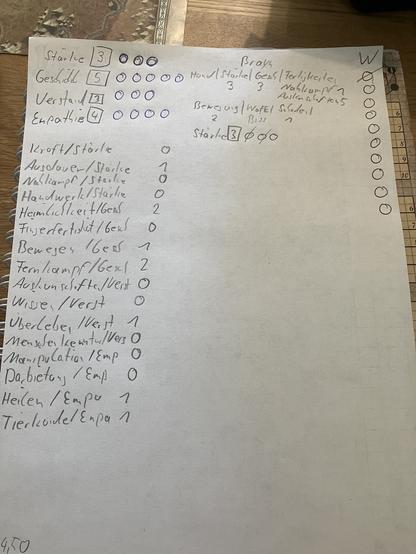 Stärke 3
Geschick 5
Verstand 3
Empathie 4
W
Hund/Stärke/Gesch/Fertigkeiten
3 3 Nahkampf 1
5
Bewegung/Waffe/Schaden
2 Biss 1
Stärke 3
Kraft/Stärke 0
Ausdauer/Stärke 1
Nahkampf/Stärke 0
Handwerk/Stärke 0
Heimlichkeit/Gesch 2
Fingerfertigkeit/Gesch 0
Bewegen/Gesch 1
Fernkampf/Gesch 2
Auskundschaften/Verst 0
Wissen/Verst 0
Überleben/Verst 1
Menschenkenntnis/Vers 0
Manipulation/Emp 0
Darbietung/Emp 0
Heilen/Empa 1
Tierkunde/Empa 1
4,50